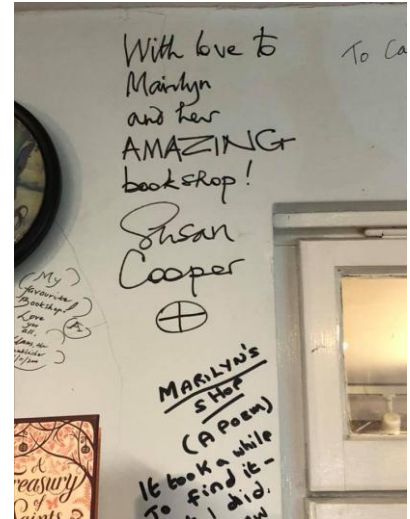 With love to
Marilyn
and her
AMAZING
bookshop!
Susan
Cooper
To Ca
(My
favourite
Bookshop!
Love
you
all,
MARILYN'S
SHOP
(A POEM)
It took a while
To find it-
did.
A
reasury
of
aints